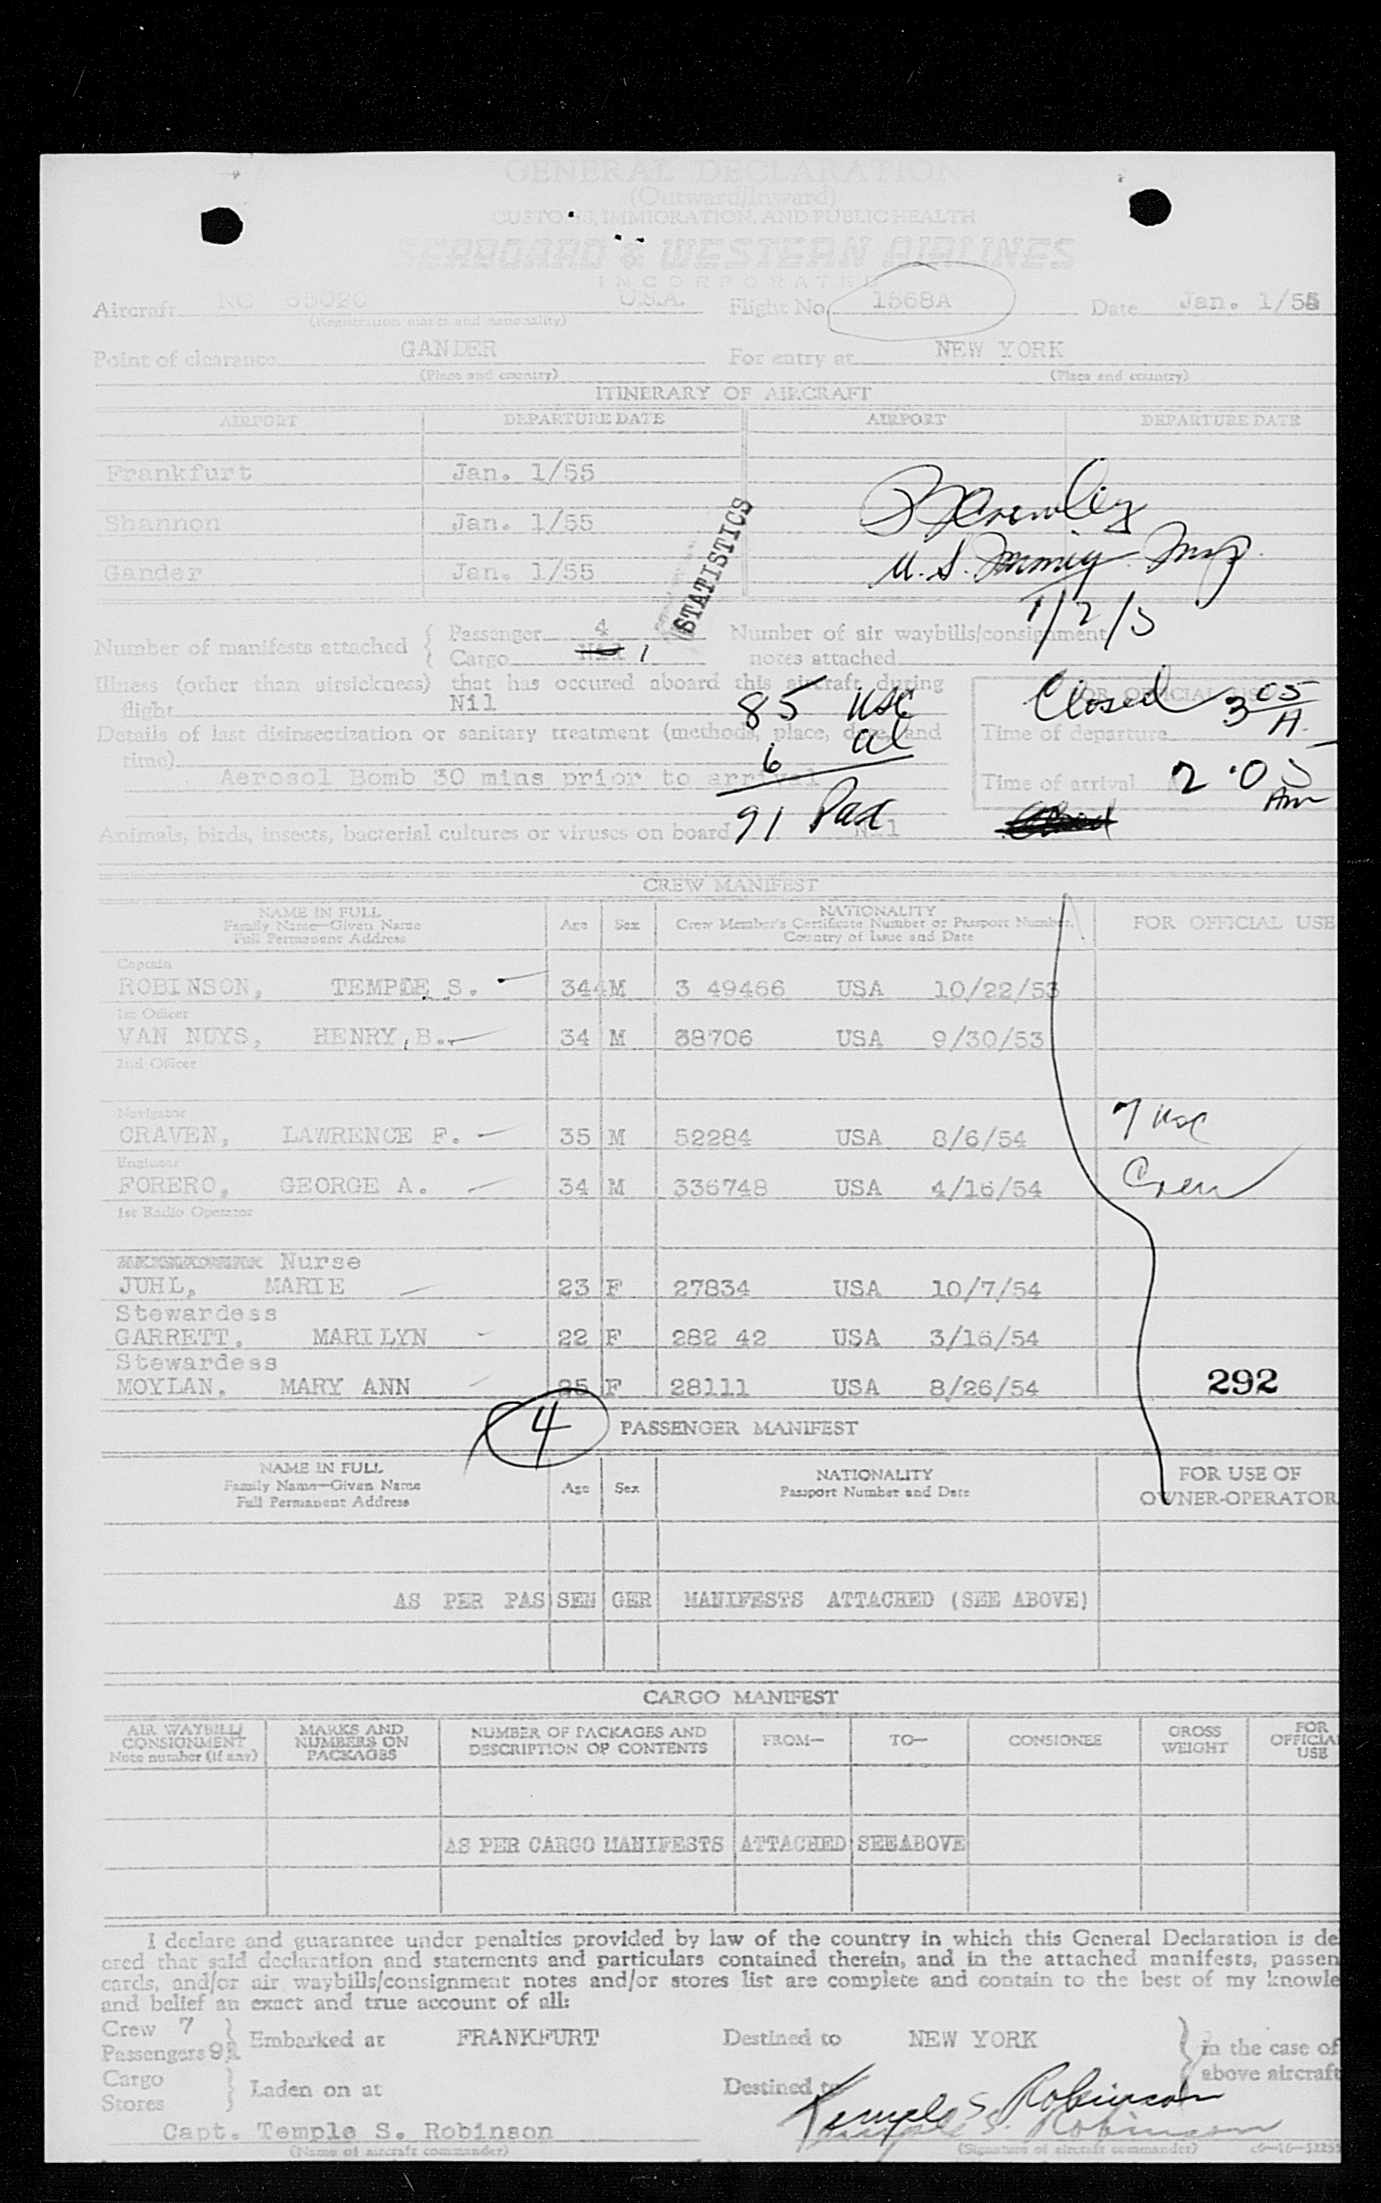 GENERAL DECLARATION
(Outward/Inward)
CUSTOMS, IMMIGRATION, AND PUBLIC HEALTH
SEABOARD & WESTERN AIRLINES
INCORPORATED
Aircraft NC U.S.A. Flight No. 1568A Date Jan. 1/55
(Registration marks and nationality)
Point of clearance GANDER For entry at NEW YORK
(Place and country) (Place and country)
ITINERARY OF AIRCRAFT
AIRPORT DEPARTURE DATE AIRPORT DEPARTURE DATE
Frankfurt Jan. 1/55
Shannon Jan. 1/55
Gander Jan. 1/55
STATISTICS
U.S. Immig. Insp.
1/2/5
Number of manifests attached { Passenger 4 Number of air waybills/consignment
Cargo Nil 1 notes attached
Illness (other than airsickness) that has occured aboard this aircraft during
flight Nil
FOR OFFICIAL USE
Closed 3 05 A.
85 USC
6 al
91 Pax
Details of last disinsectization or sanitary treatment (methods, place, date, and
time) Aerosol Bomb 30 mins prior to arrival
Time of departure
Time of arrival 2.05 Am
Animals, birds, insects, bacterial cultures or viruses on board Nil
CREW MANIFEST
NAME IN FULL Age Sex NATIONALITY FOR OFFICIAL USE
Family Name—Given Name Crew Member's Certificate Number or Passport Number.
Full Permanent Address Country of Issue and Date
Captain
ROBINSON, TEMPLE S. 34 M 3 49466 USA 10/22/53
1st Officer
VAN NUYS, HENRY, B. 34 M 38706 USA 9/30/53
2nd Officer
Navigator
CRAVEN, LAWRENCE F. 35 M 52284 USA 8/6/54
7 usc
Crew
Engineer
FORERO, GEORGE A. 34 M 336748 USA 4/16/54
1st Radio Operator
Nurse
JUHL, MARIE 23 F 27834 USA 10/7/54
Stewardess
GARRETT, MARILYN 22 F 282 42 USA 3/16/54
Stewardess
MOYLAN, MARY ANN 25 F 28111 USA 8/26/54
292
4
PASSENGER MANIFEST
NAME IN FULL Age Sex NATIONALITY FOR USE OF
Family Name—Given Name Passport Number and Date OWNER-OPERATOR
Full Permanent Address
AS PER PAS SEN GER MANIFESTS ATTACHED (SEE ABOVE)
CARGO MANIFEST
AIR WAYBILL/ CONSIGNMENT Note number (if any) MARKS AND NUMBERS ON PACKAGES NUMBER OF PACKAGES AND DESCRIPTION OF CONTENTS FROM— TO— CONSIGNEE GROSS WEIGHT FOR OFFICIA USE
AS PER CARGO MANIFESTS ATTACHED SEE ABOVE
I declare and guarantee under penalties provided by law of the country in which this General Declaration is de
ered that said declaration and statements and particulars contained therein, and in the attached manifests, passen
cards, and/or air waybills/consignment notes and/or stores list are complete and contain to the best of my knowle
and belief an exact and true account of all:
Crew 7 } Embarked at FRANKFURT Destined to NEW YORK } in the case of
Passengers 91 above aircraft
Cargo } Laden on at Destined to
Stores
Temple S. Robinson
Capt. Temple S. Robinson
(Name of aircraft commander) (Signature of aircraft commander)